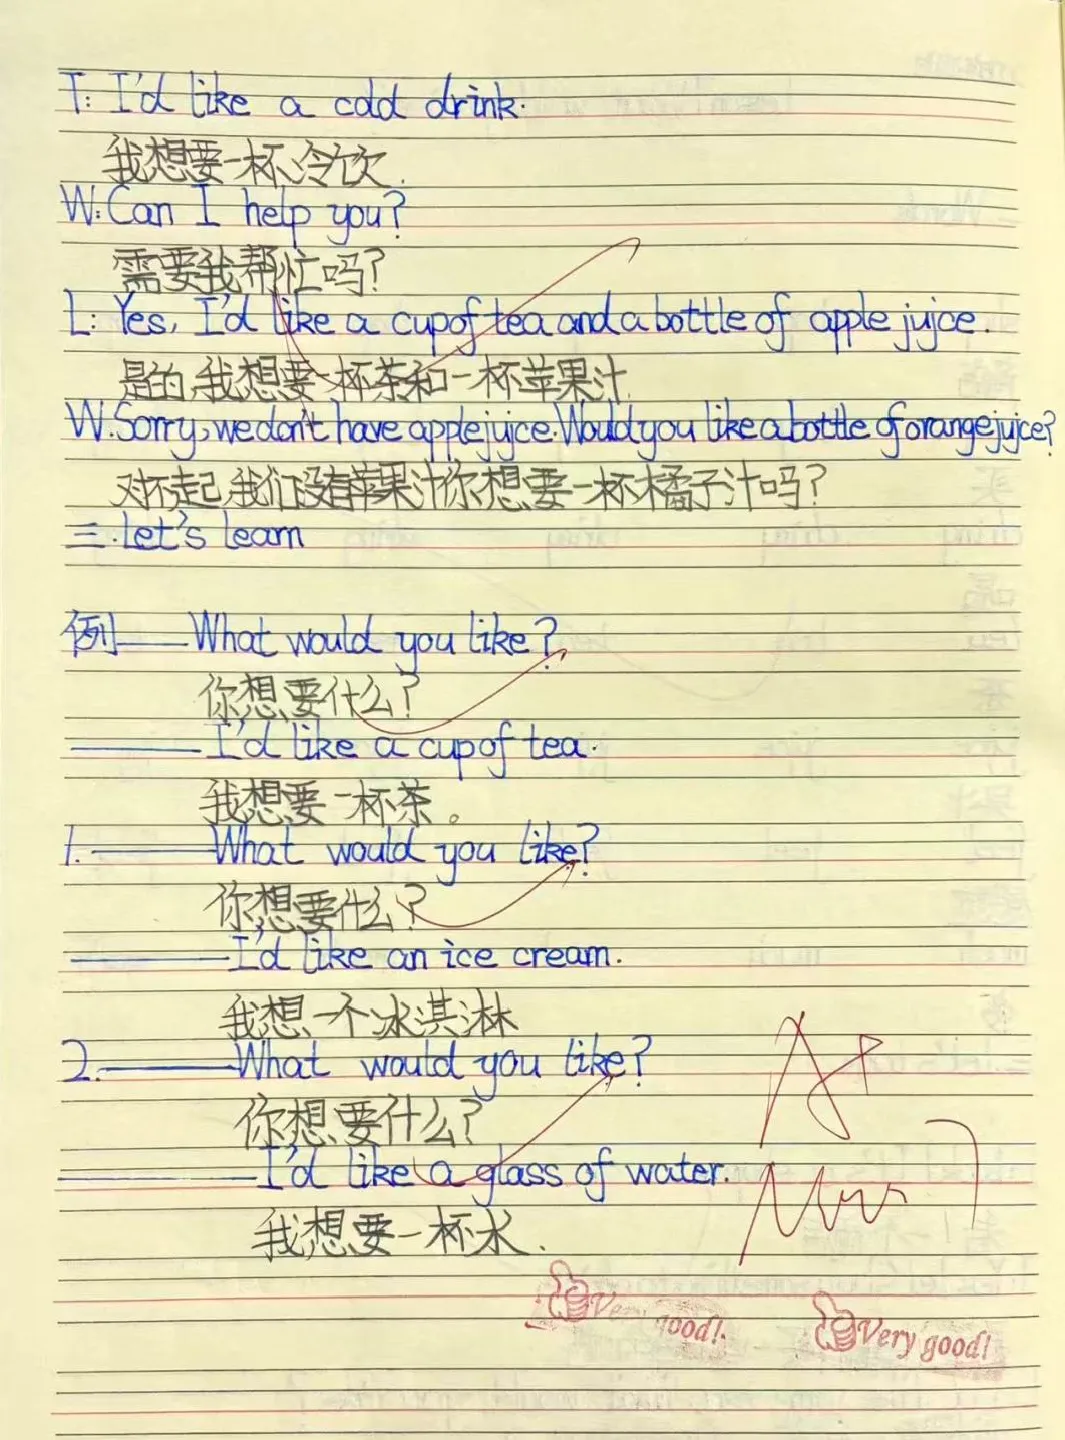 T: I'd like a cold drink.
我想要一杯冷饮.
W: Can I help you?
需要我帮忙吗?
L: Yes, I'd like a cup of tea and a bottle of apple juice.
是的,我想要一杯茶和一杯苹果汁
W: Sorry, we don't have apple juice. Would you like a bottle of orange juice?
对不起,我们没有苹果汁你想要一杯橘子汁吗?
三.let's learn
例——What would you like?
你想要什么?
——I'd like a cup of tea.
我想要一杯茶。
1.——What would you like?
你想要什么?
——I'd like an ice cream.
我想一个冰淇淋
2.——What would you like?
你想要什么?
——I'd like a glass of water.
我想要一杯水.
A+
Very good!
Very good!